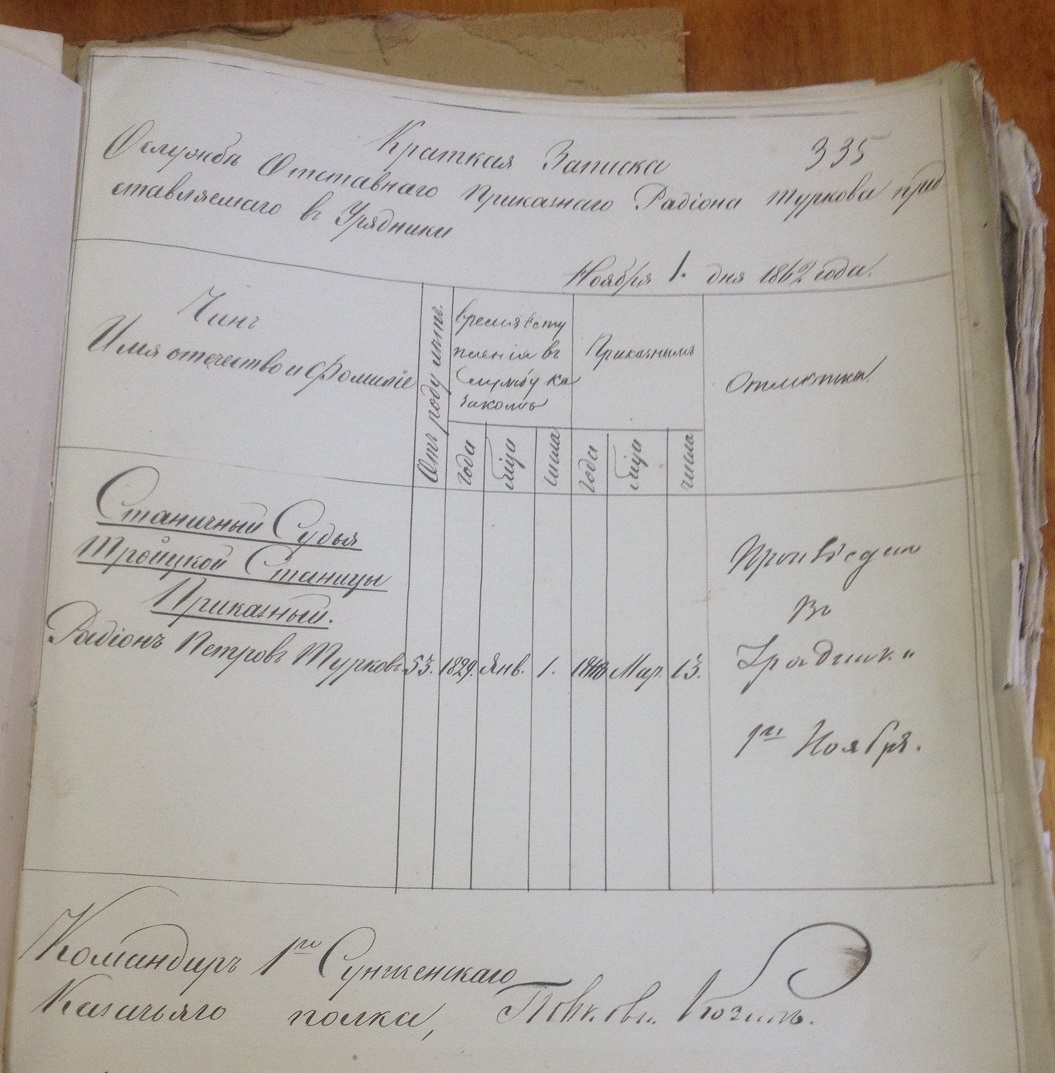 Краткая Записка 335
О службѣ Отставнаго Приказнаго Радіона Туркова пред
ставляемаго въ Урядники
Ноября 1. дня 1862 года.
Чинъ
Имя отечество и Фомиліе
Отъ роду лѣтъ.
время всту
пленія въ
службу ка
закомъ
Приказнымъ
Отмѣтка
года
мца
числа
года
мца
числа
Станичный Судья
Тройцкой Станицы
Приказный.
Радіонъ Петровъ Турковъ 53. 1829. Янв. 1. Мар. 13.
Произведен
въ
Урядники
1го Ноября.
Командиръ 1го Сунженскаго
Казачьяго полка,